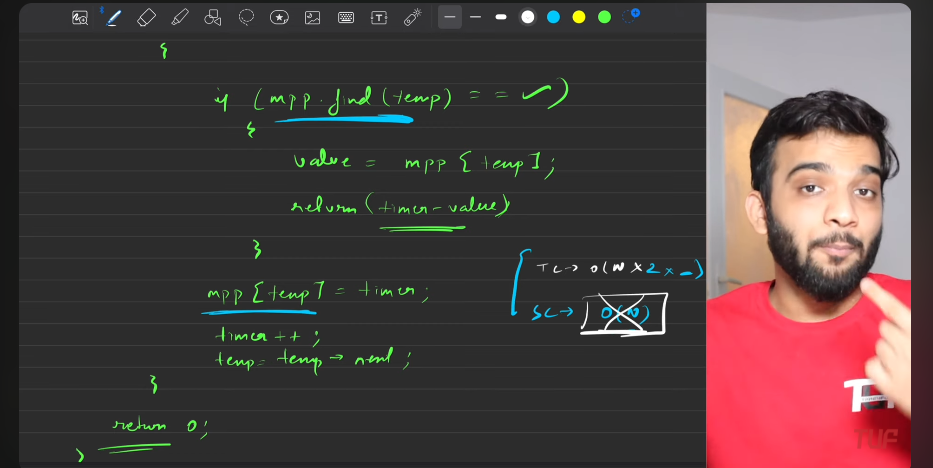 {
if (mpp.find(temp) == ✓)
{
value = mpp[temp];
return(timer-value)
}
mpp[temp] = timer;
timer++;
temp = temp→next;
}
return 0;
}
TC→ O(N×2×-)
SC→ O(N)
TUF